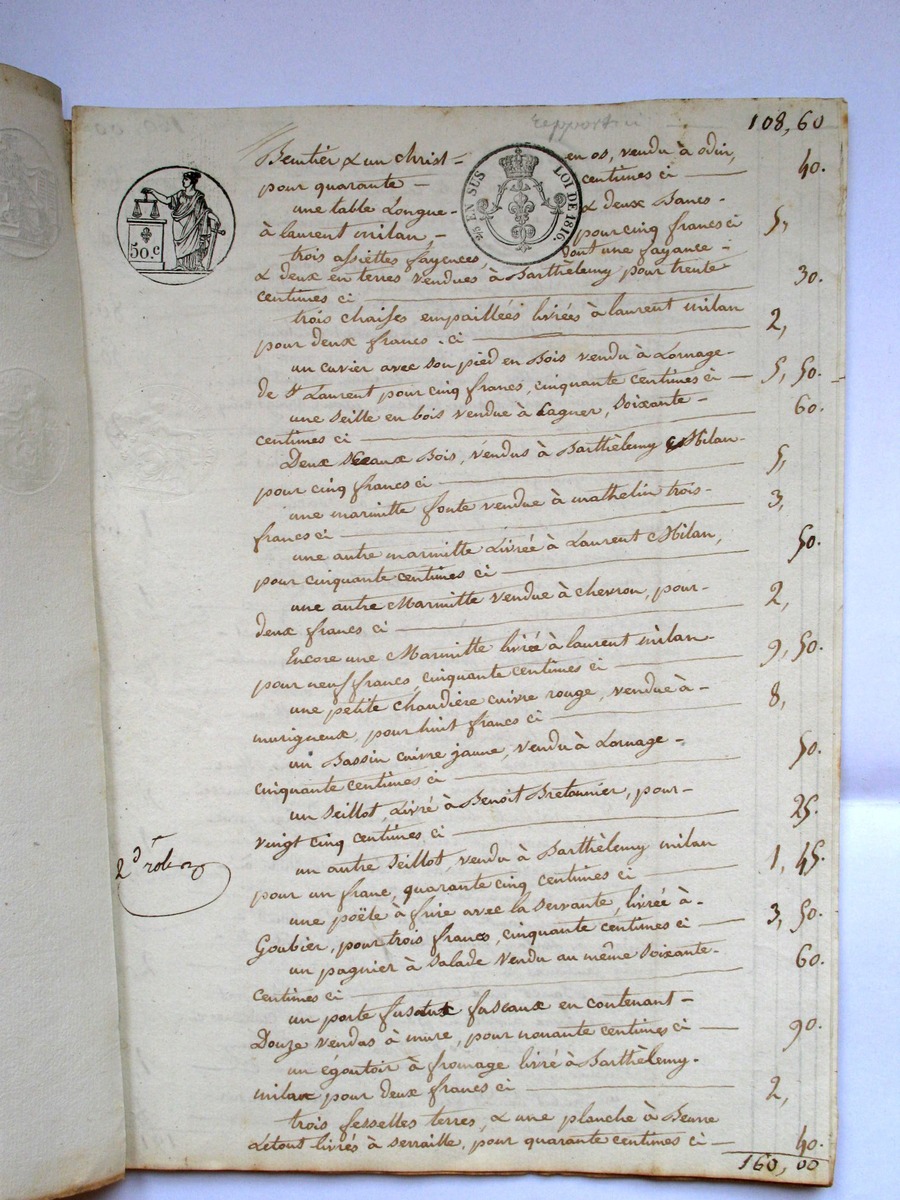 108,60
Benitier & un christ - en os, vendu à odin,
pour quarante - centimes ci 40.
une table Longue - & deux Bancs -
à laurent milan, - pour cinq francs ci 5,
trois assiettes fayences, dont une fayance -
& deux en terres vendues à Barthèlemy pour trente
centimes ci 30.
trois chaises empaillées livrées à laurent milan
pour deux francs . ci 2,
un cuvier avec son pied en Bois vendu à Lornage -
de St Laurent pour cinq francs, cinquante centimes ci 5, 50.
une seille en bois vendue à Gagner, soixante -
centimes ci 60.
Deux sceaux Bois, vendus à Barthèlemy Milan -
pour cinq francs ci 5,
une marmitte fonte vendue à mathelin trois -
francs ci 3,
une autre marmitte Livrée à Laurent Milan,
pour cinquante centimes ci 50.
une autre Marmitte vendue à chevron, pour -
deux francs ci 2,
Encore une Marmitte livrée à laurent milan
pour neuf francs, cinquante centimes ci 9, 50.
une petite chaudière cuivre rouge, vendue à -
murigneux, pour huit francs ci 8,
un Bassin cuivre jaune, vendu à Lornage -
cinquante centimes ci 50.
un seillot, Livré à Benoit Bretonnier, pour -
vingt cinq centimes ci 25.
2d role
un autre seillot, vendu à Barthèlemy milan
pour un franc, quarante cinq centimes ci 1, 45.
une poële à frire avec la servante, livrée à -
Goubier, pour trois francs, cinquante centimes ci 3, 50.
un pagnier à salade vendu au même soixante -
centimes ci 60.
un porte fuseaux en contenant -
Douze vendus à mure, pour nonante centimes ci 90.
un égoutoir à fromage livré à Barthèlemy -
milan pour deux francs ci 2,
trois fesselles terres, & une planche à Beurre
Letout livrés à serraille, pour quarante centimes ci 40.
160,00
50.c
EN SUS
LOI DE 1816.